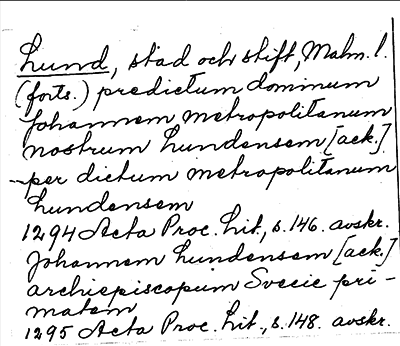 Lund, stad och stift, Malm. l.
(forts.) predictum dominum
Johannem metropolitanum
nostrum Lundensem [ack.]
-per dictum metropolitanum
Lundensem
1294 Acta Proc. Lit., s. 146. avskr.
Johannem Lundensem [ack.]
archiepiscopum Svecie pri-
matem
1295 Acta Proc. Lit., s. 148. avskr.